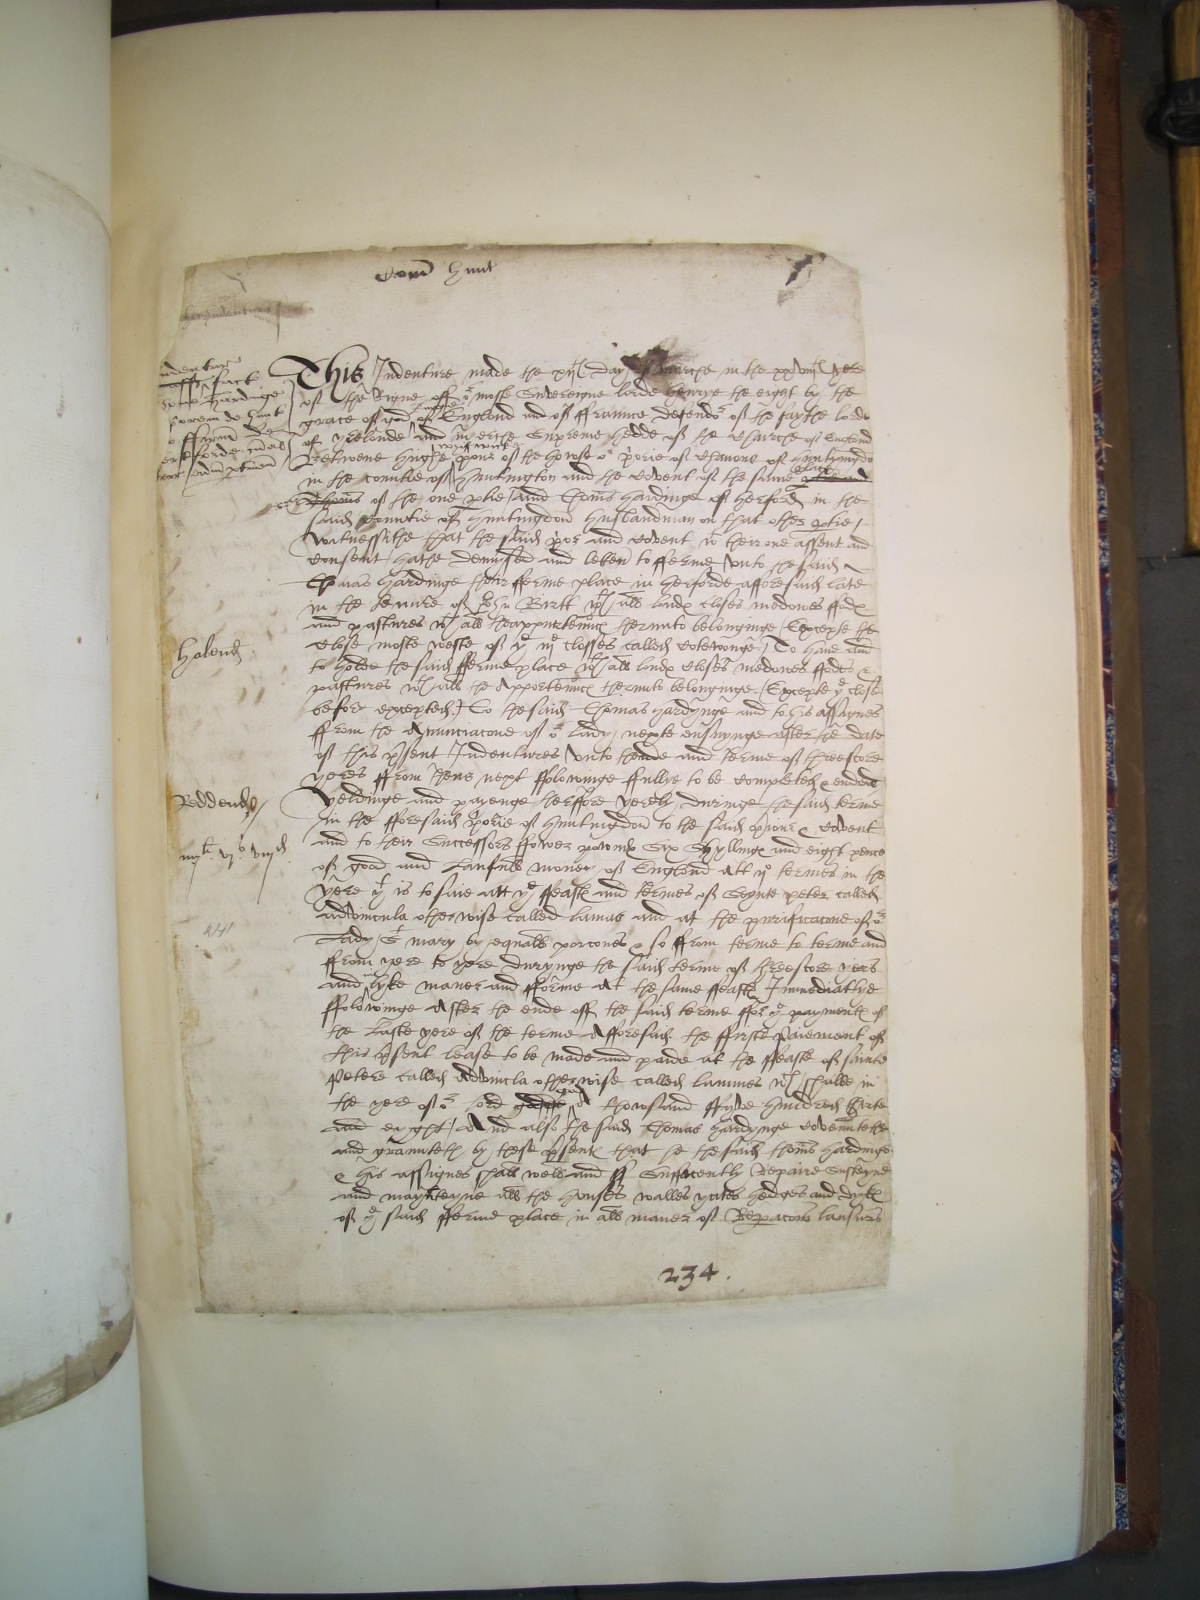 Com Hunt
This Indenture made the xij day of marche in the xxviij yere
of the Reigne off or moste Sovereigne lorde henrye the eight by the
grace off god of England and off ffraunce defendor off the faythe lorde
of yrelonde and in erthe Supreme hedde off the Churche off England
Betwene hughe prior off the howse & priorie off Chanons off huntyngdo
in the countie off huntington and the Covent off the same place
off the one ptie and Thoms hardinge off herford in the
said Countie off huntingdon husbandman on that other ptie
witnessithe that the said prior and Covent wt their one assent and
consent hathe demysed and leten to fferme unto the said
Thomas hardinge their fferme place in herforde afforesaid late
in the tenure off John Birtt wt all londs closes medowes ffeds
and pastures wt all theappurtennces therunto belonginge Excepte the
Close moste weste off ye iij closses called To have and
to holde the said fferme place wt all londs closes medowes ffeds &
pastures wt all the Appertennces therunto belonginge (Excepte ye close
before excepted) To the said Thomas hardynge and to his assignes
ffrom the Annunciacone off or lady nexte ensuynge after the date
off this psent Indentures unto thende and terme off threscore
yeres ffrom thens next ffolowinge ffullye to be completed & ended
yeldinge and payenge therffore yerely duringe the said terme
in the fforesaid priorie off huntingdon to the said prior & Covent
and to their Successors ffower pownds Six Shyllings and eight pence
off good and Laufull money off England Att ij termes in the
yere yt is to saie att ye ffeasts and termes off Seynte peter called
advincula otherwise called lamas and at the purificacone off or
Lady St mary by equall porcones & so ffrom terme to terme and
ffrom yere to yere durynge the said terme off threscore yeres
and in lyke maner and fforme At the same ffeasts Immediatlye
ffolowinge After the ende off the said terme ffor ye payments off
the laste yere off the terme Afforesaid the ffirste paiement off
this psent lease to be made and paide at the ffeaste off sainte
Peters called Advincla otherwise called lammes wch shalbe in
the yere off or lord god A thowsand ffyve hundred thirte
and eyght And also the said Thomas hardynge Covennteth
and graunteth by these psents that he the said thoms hardinge
& his assignes shall well and Sufficently Repaire Susteyne
and maynteyne all the houses walles yates hedges and dyks
off ye said fferme place in all maner off Repacons
habend
Reddendo
iiijli vjs viijd
234.